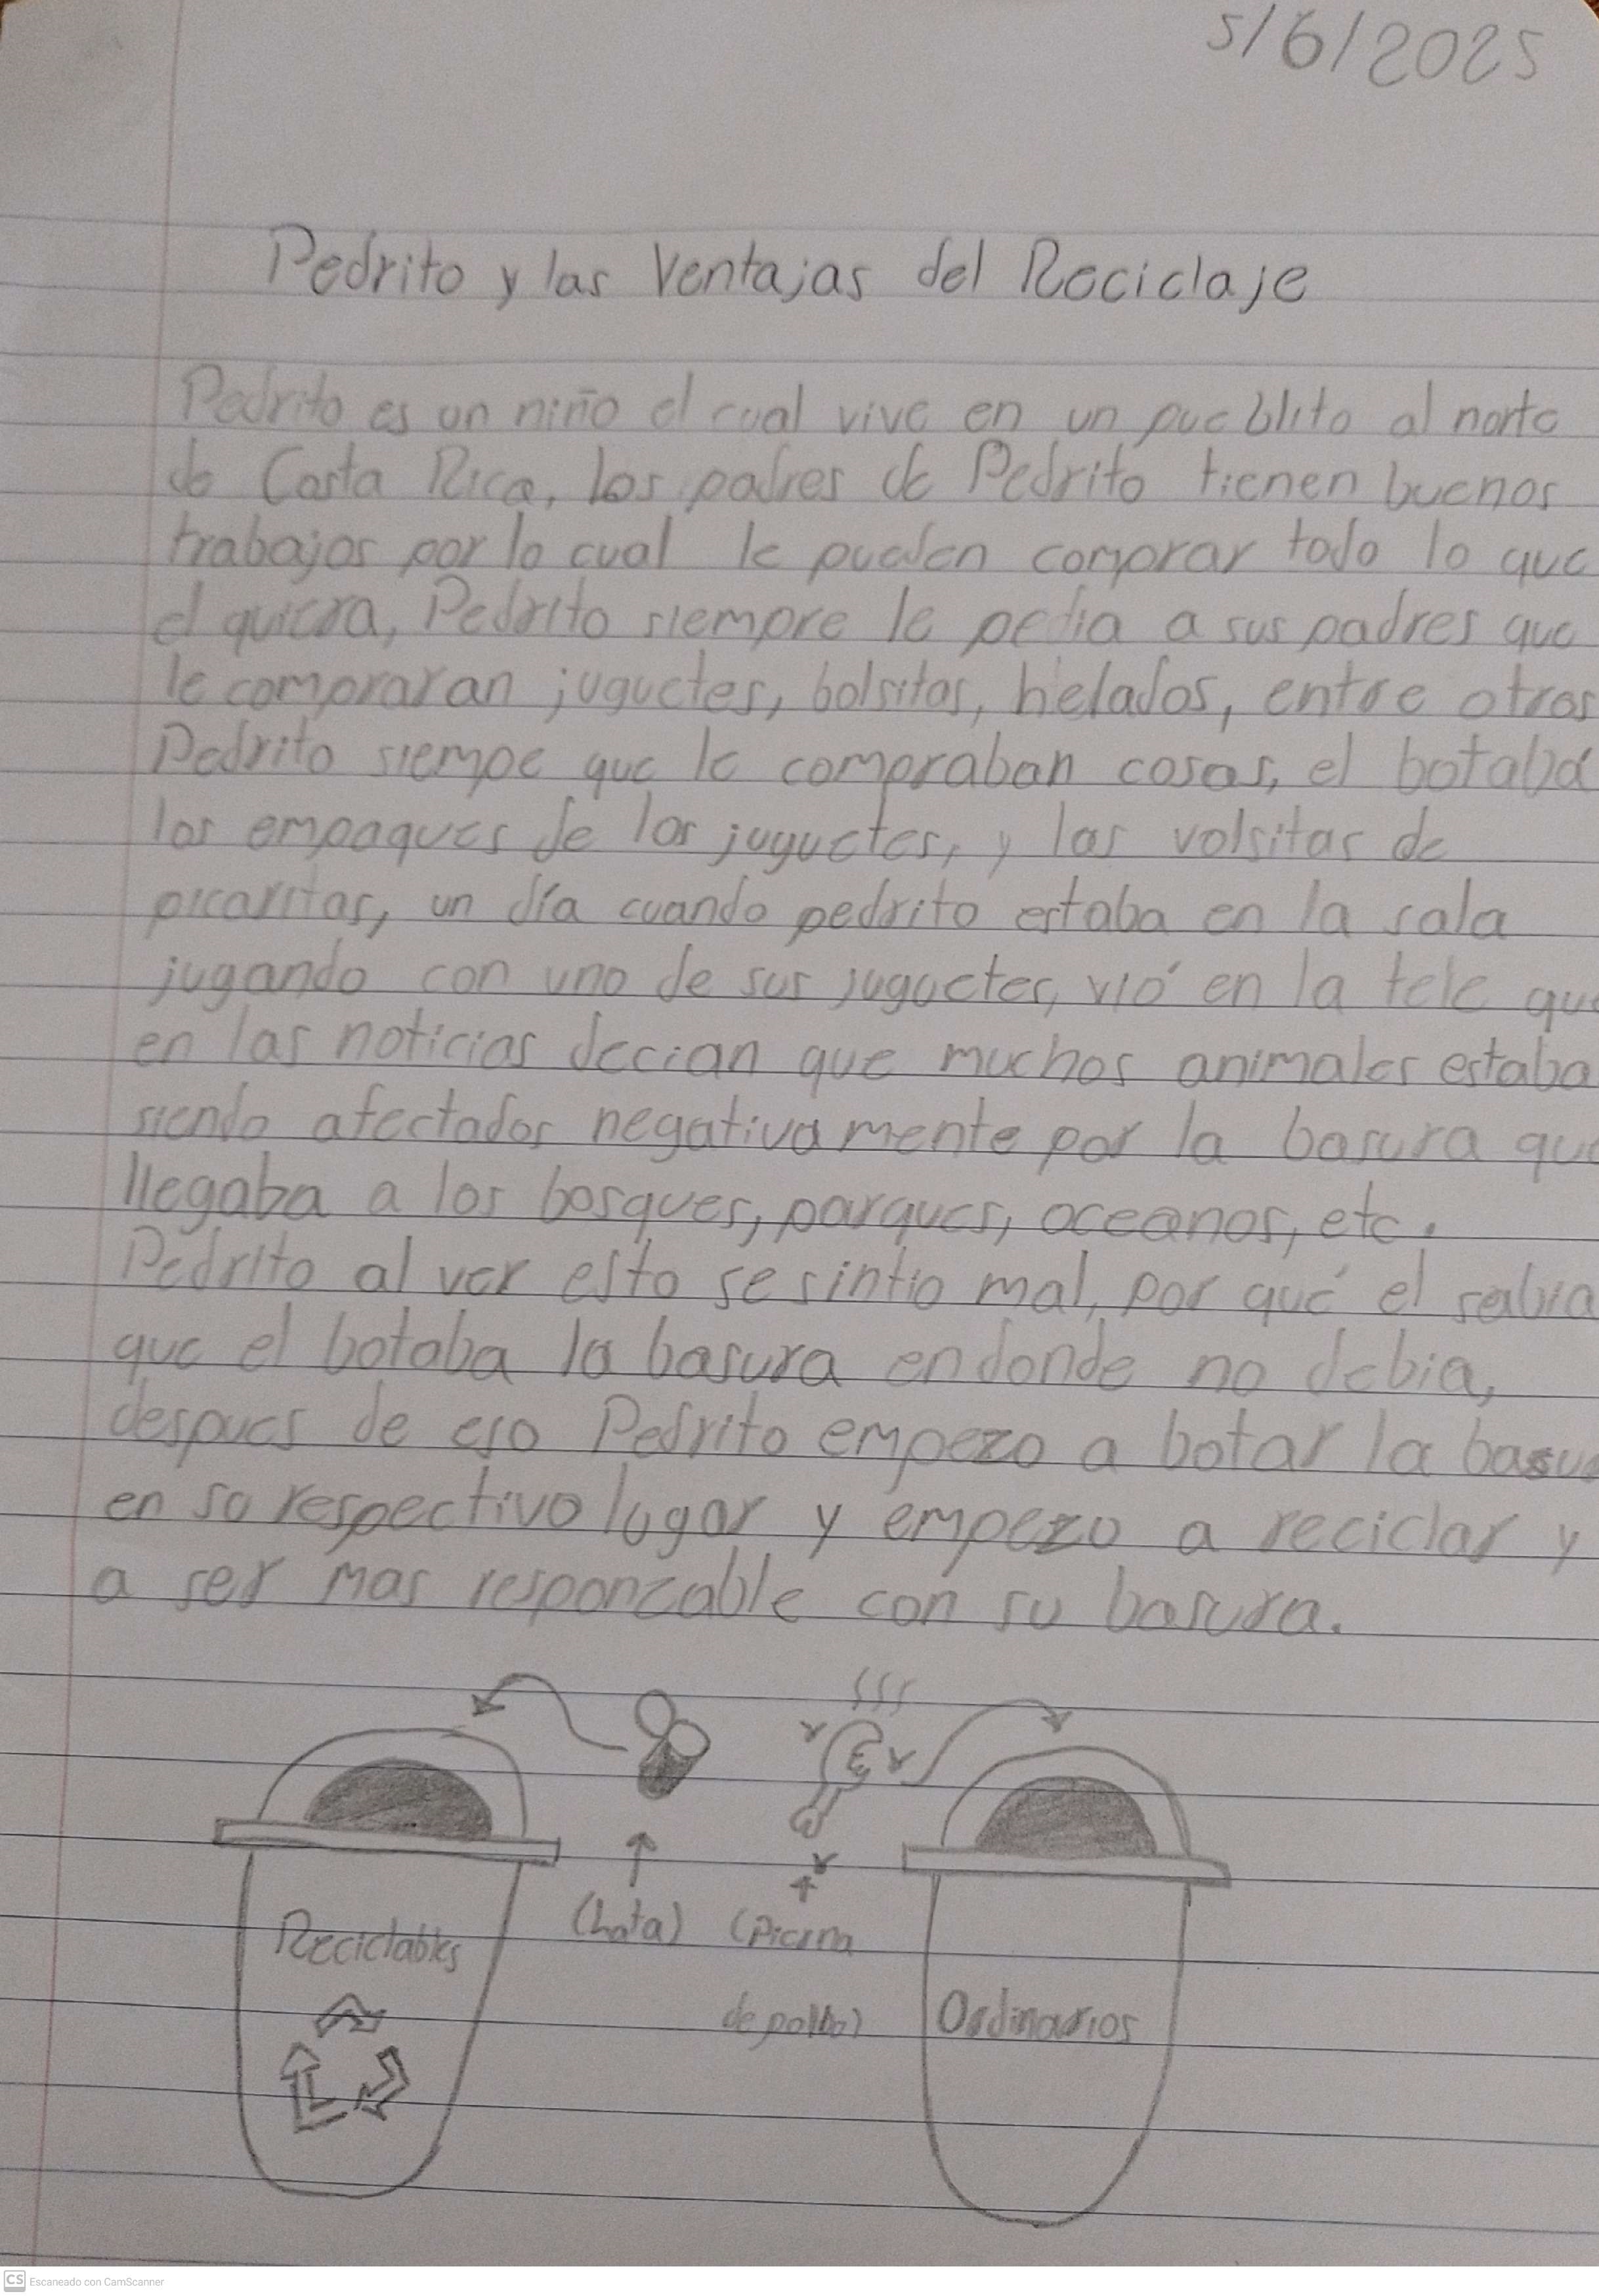 5/6/2025
Pedrito y las Ventajas del Reciclaje
Pedrito es un niño el cual vive en un pueblito al norte
de Costa Rica, los padres de Pedrito tienen buenos
trabajos por lo cual le pueden comprar todo lo que
el quiera, Pedrito siempre le pedia a sus padres que
le compraran juguetes, bolsitas, helados, entre otros
Pedrito siempe que le compraban cosas, el botaba
los empaques de los juguetes, y las volsitas de
picaritas, un día cuando pedrito estaba en la sala
jugando con uno de sus juguetes, vió en la tele que
en las noticias decian que muchos animales estaba
siendo afectados negativamente por la basura que
llegaba a los bosques, parques, oceanos, etc.
Pedrito al ver esto se sintio mal, por qué el sabia
que el botaba la basura en donde no debia,
despues de eso Pedrito empezo a botar la basu
en su respectivo lugar y empezo a reciclar y
a ser mas responzable con su basura.
Reciclables
(Lata)
(Pierna
de pollo)
Ordinarios
CS Escaneado con CamScanner